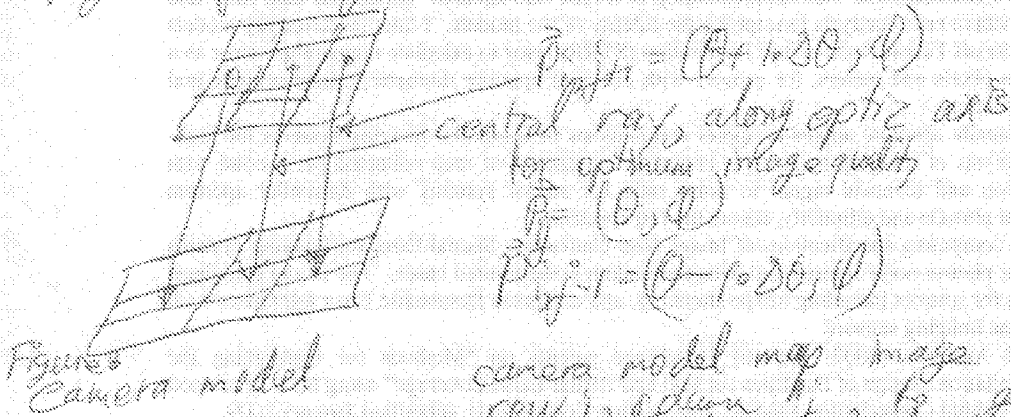 P⃗i,j+1 = (θ + 1·Δθ, φ)
central ray, along optic axis
for optimum image quality
P⃗ij = (θ, φ)
P⃗i,j-1 = (θ - 1·Δθ, φ)
Figure
Camera model
camera model map image
row i, column